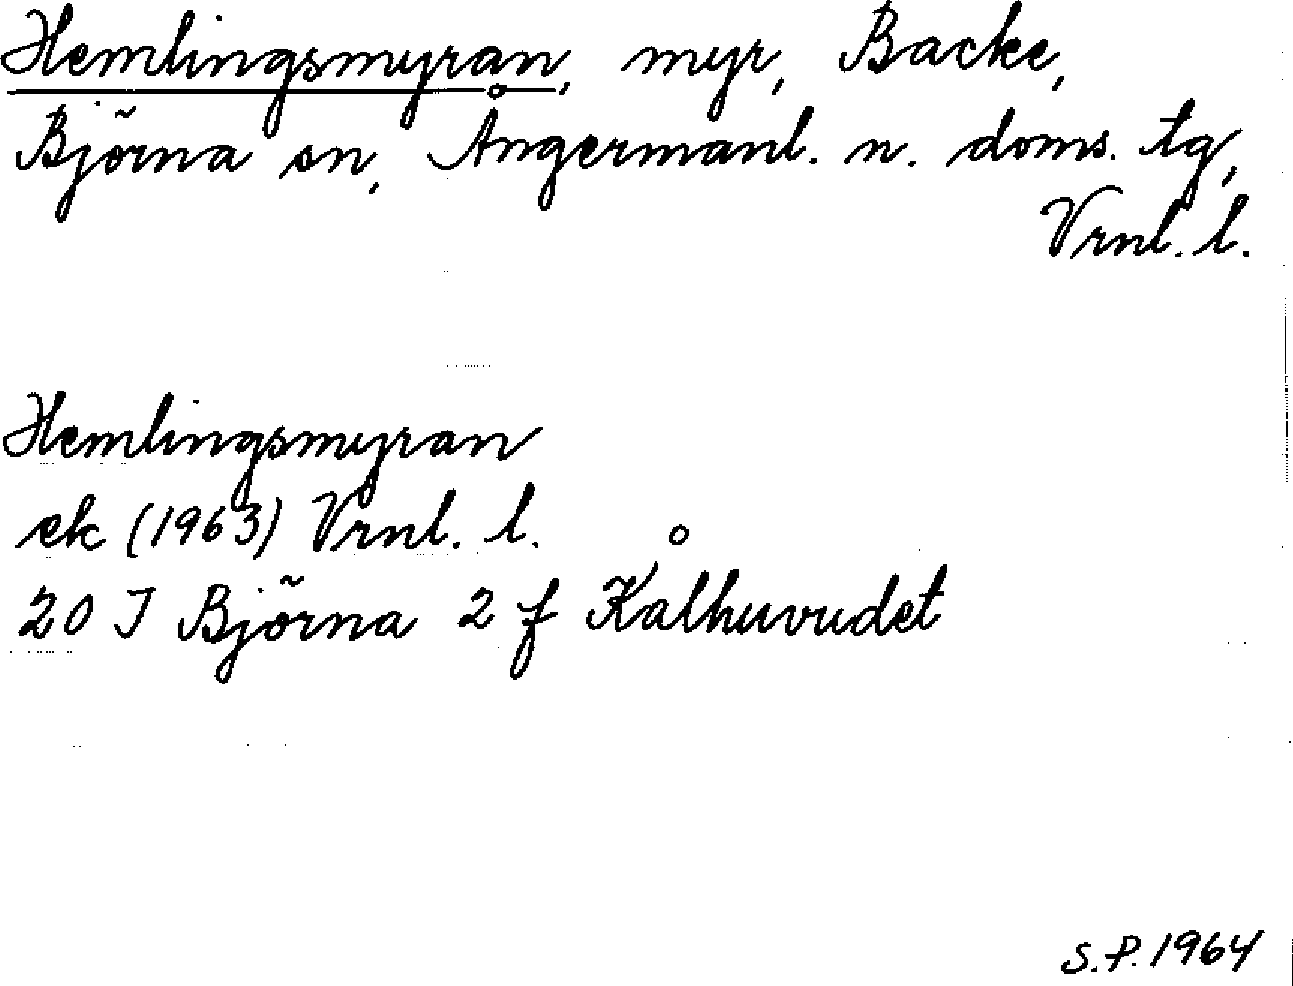 Hemlingsmyran, myr, Backe,
Björna sn, Ångermanl. n. doms. tg,
Vrnl. l.
Hemlingsmyran
ek (1963) Vrnl. l.
20 I Björna 2 f Kålhuvudet
S.P. 1964